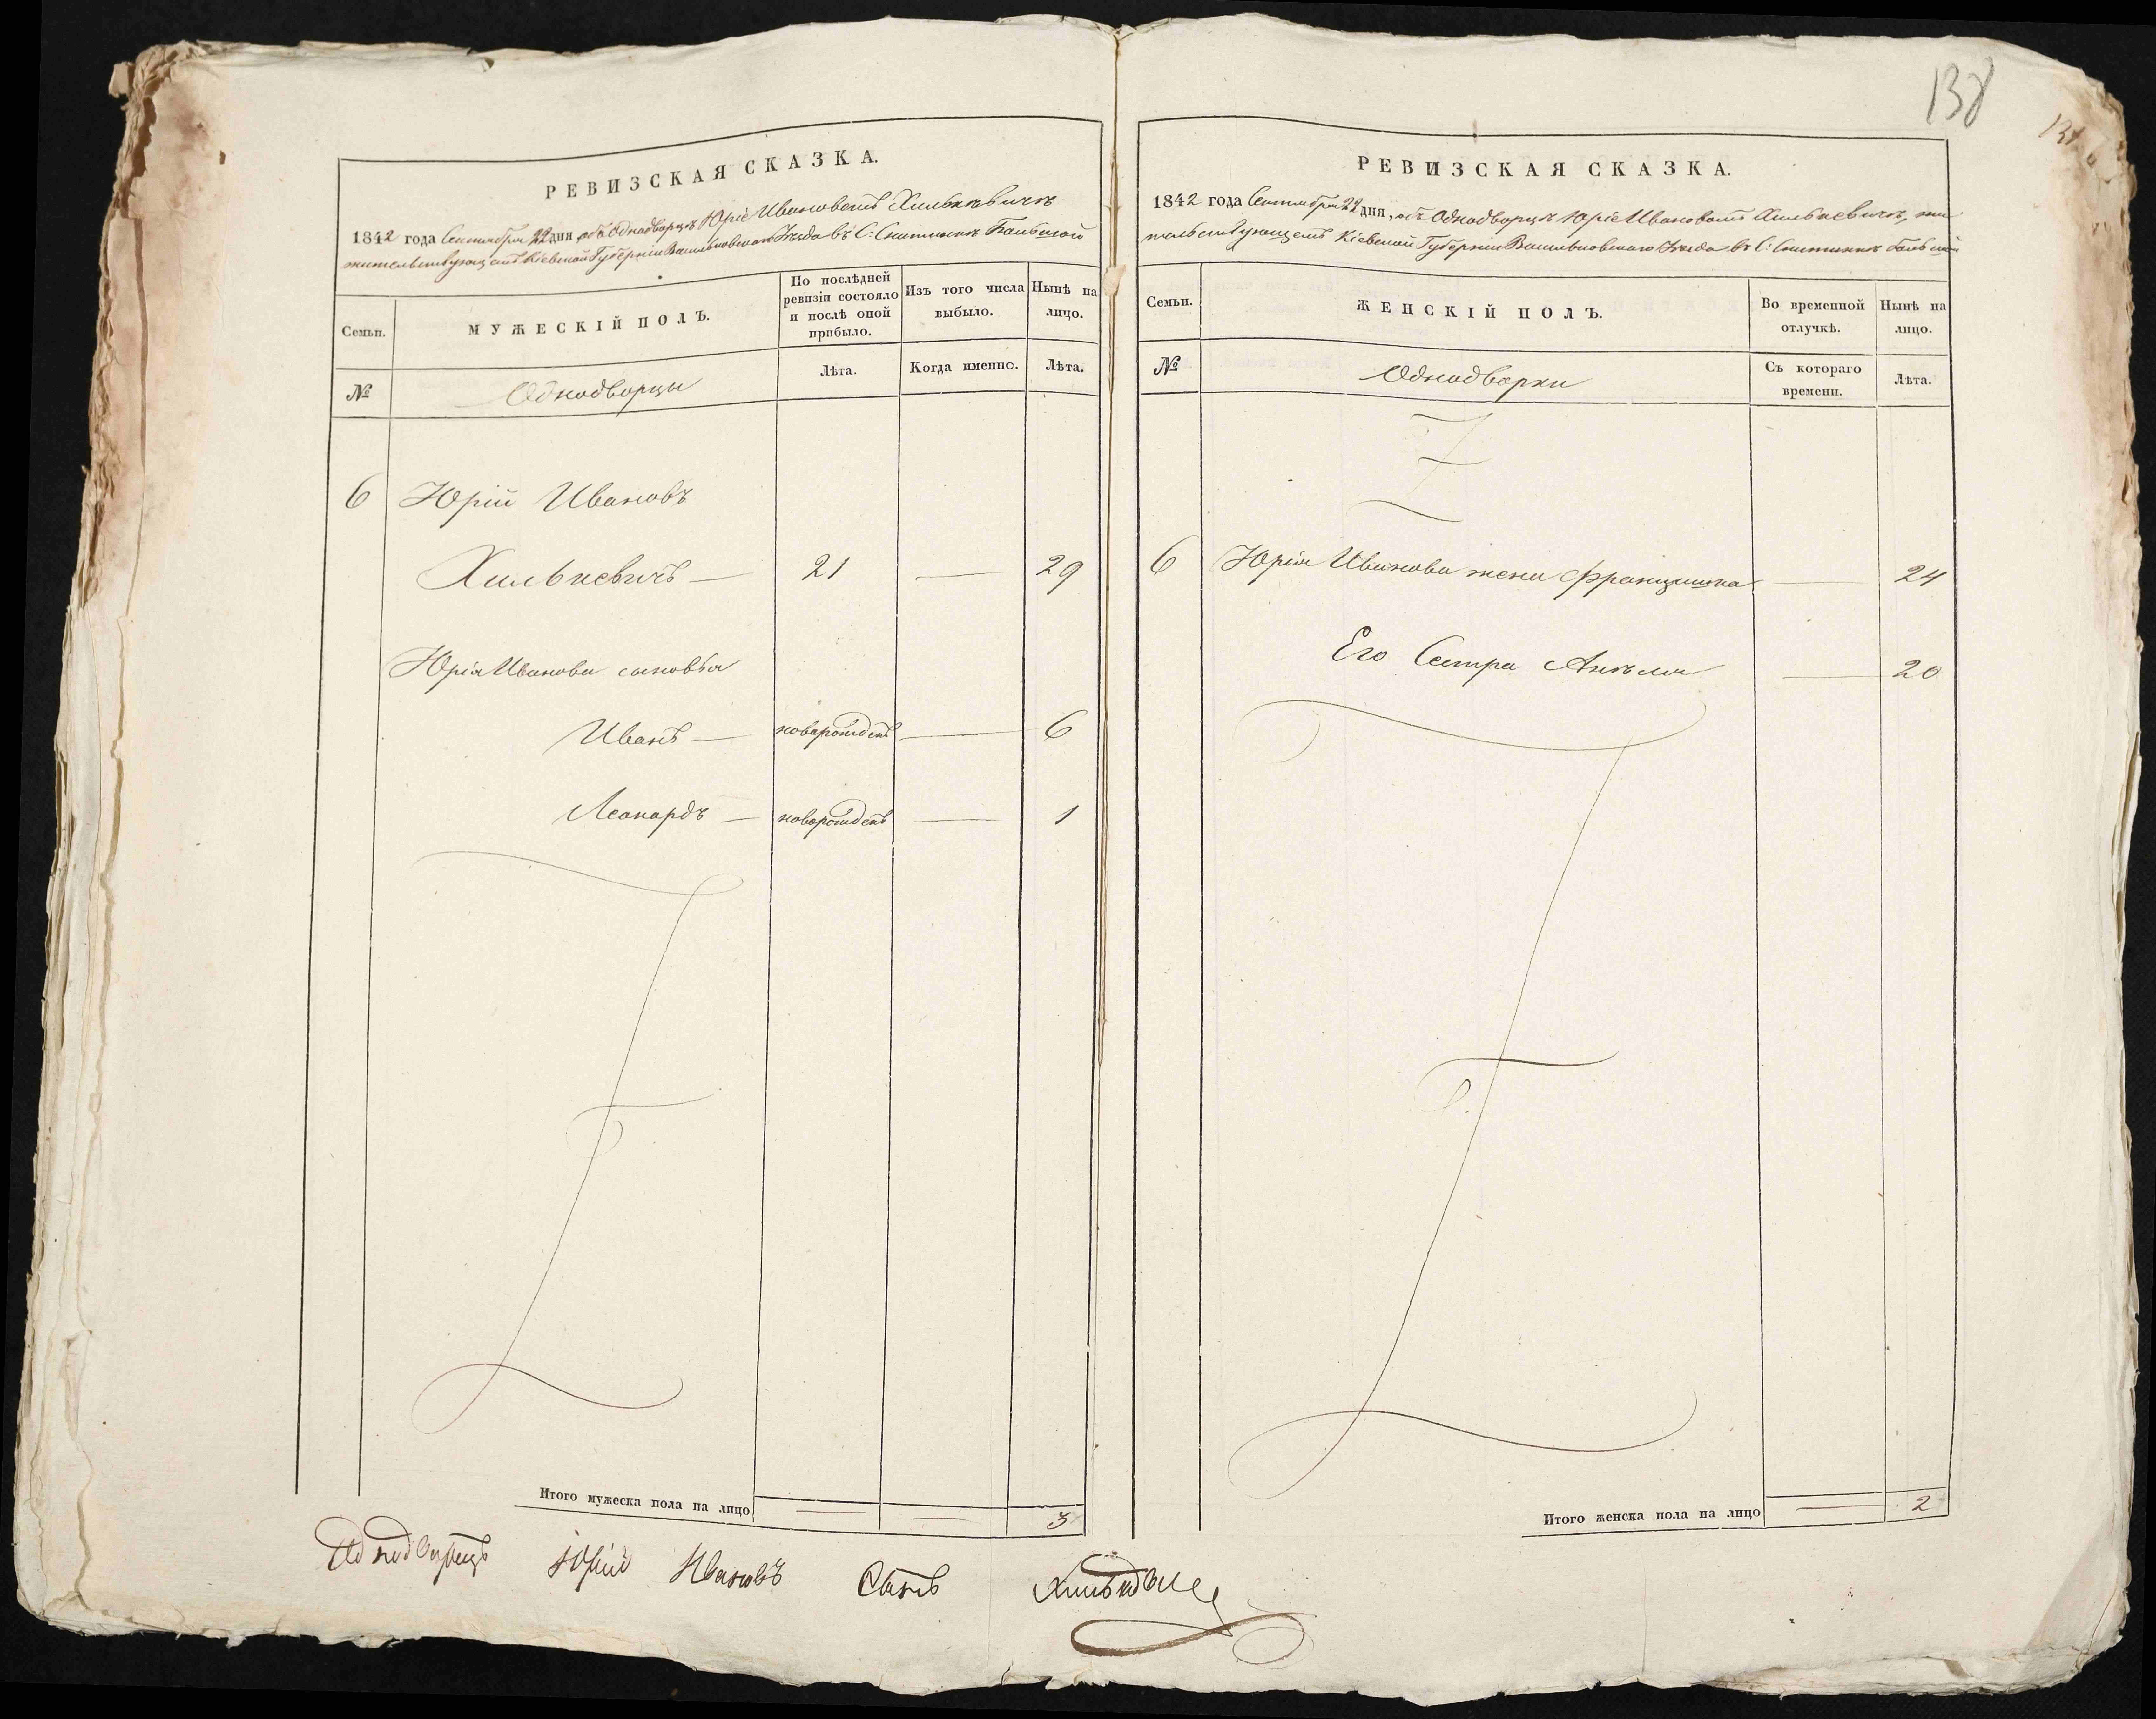 138
РЕВИЗСКАЯ СКАЗКА.
1842 года Сентября 22 дня, объ Однодворцѣ Юріе Ивановомъ Хилькѣвичѣ
жительствующемъ Кіевской Губерніи Васильковскаго Уѣзда въ С:
Семьи.
МУЖЕСКІЙ ПОЛЪ.
По послѣдней ревизіи состояло и послѣ оной прибыло.
Изъ того числа выбыло.
Нынѣ на лицо.
№
Однодворцы
Лѣта.
Когда именно.
Лѣта.
6 Юрій Ивановъ
Хилькевичъ — 21 — 29
Юрія Иванова сыновья
Иванъ — новорожденъ — 6
Леонардъ — новорожденъ — 1
Итого мужеска пола на лицо 3
РЕВИЗСКАЯ СКАЗКА.
1842 года Сентября 22 дня, объ Однодворцѣ Юріе Ивановомъ Хилькевичѣ, жи
тельствующемъ Кіевской Губерніи Васильковскаго Уѣзда въ С:
Семьи.
ЖЕНСКІЙ ПОЛЪ.
Во временной отлучкѣ.
Нынѣ на лицо.
№
Однодворки
Съ котораго времени.
Лѣта.
6 Юрія Иванова жена Францишка — 24
Его Сестра Анѣля — 20
Итого женска пола на лицо 2
Однодворецъ Юрій Ивановъ Сынъ